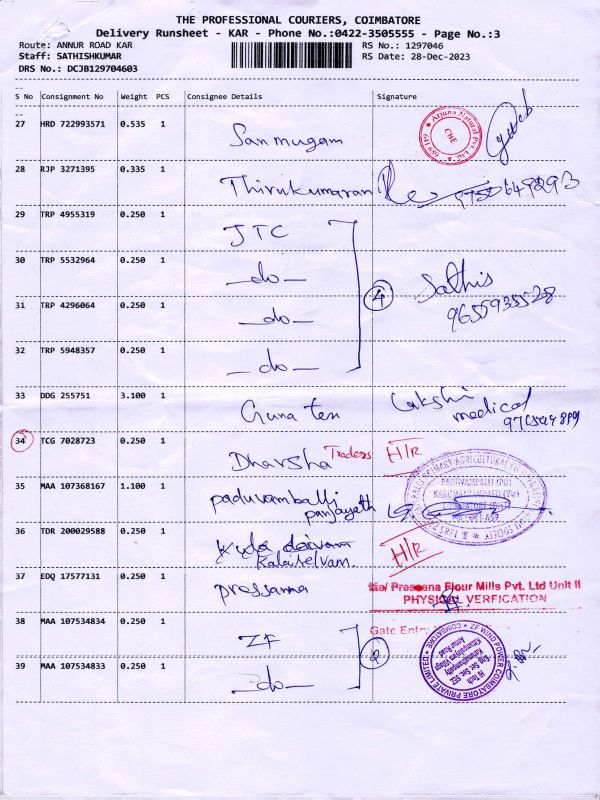 THE PROFESSIONAL COURIERS, COIMBATORE
Delivery Runsheet - KAR - Phone No.:0422-3505555 - Page No.:3
Route: ANNUR ROAD KAR
RS No.: 1297046
Staff: SATHISHKUMAR
RS Date: 28-Dec-2023
DRS No.: DCJB129704603
S No Consignment No Weight PCS Consignee Details Signature
27 HRD 722993571 0.535 1 Sanmugam
Arjuna Natural Pvt. Ltd. CBE
28 RJP 3271395 0.335 1 Thirukumaran
29 TRP 4955319 0.250 1 JTC
30 TRP 5532964 0.250 1 -do-
4 Sathis
31 TRP 4296064 0.250 1 -do-
9655935528
32 TRP 5948357 0.250 1 -do-
33 DDG 255751 3.100 1 Guna tex Lakshi
medical
34 TCG 7028723 0.250 1 Dharsha Traders H/R
35 MAA 107368167 1.100 1 paduvamballi
panjayath
36 TDR 200029588 0.250 1
Kalaiselvam. H/R
37 EDQ 17577131 0.250 1 pressanna
M/s/ Prassana Flour Mills Pvt. Ltd Unit II
PHYSICAL VERFICATION
38 MAA 107534834 0.250 1 ZF
Gate Entry
2
ZF WIND POWER COIMBATORE PRIVATE LIMITED * COIMBATORE
39 MAA 107534833 0.250 1 -do-